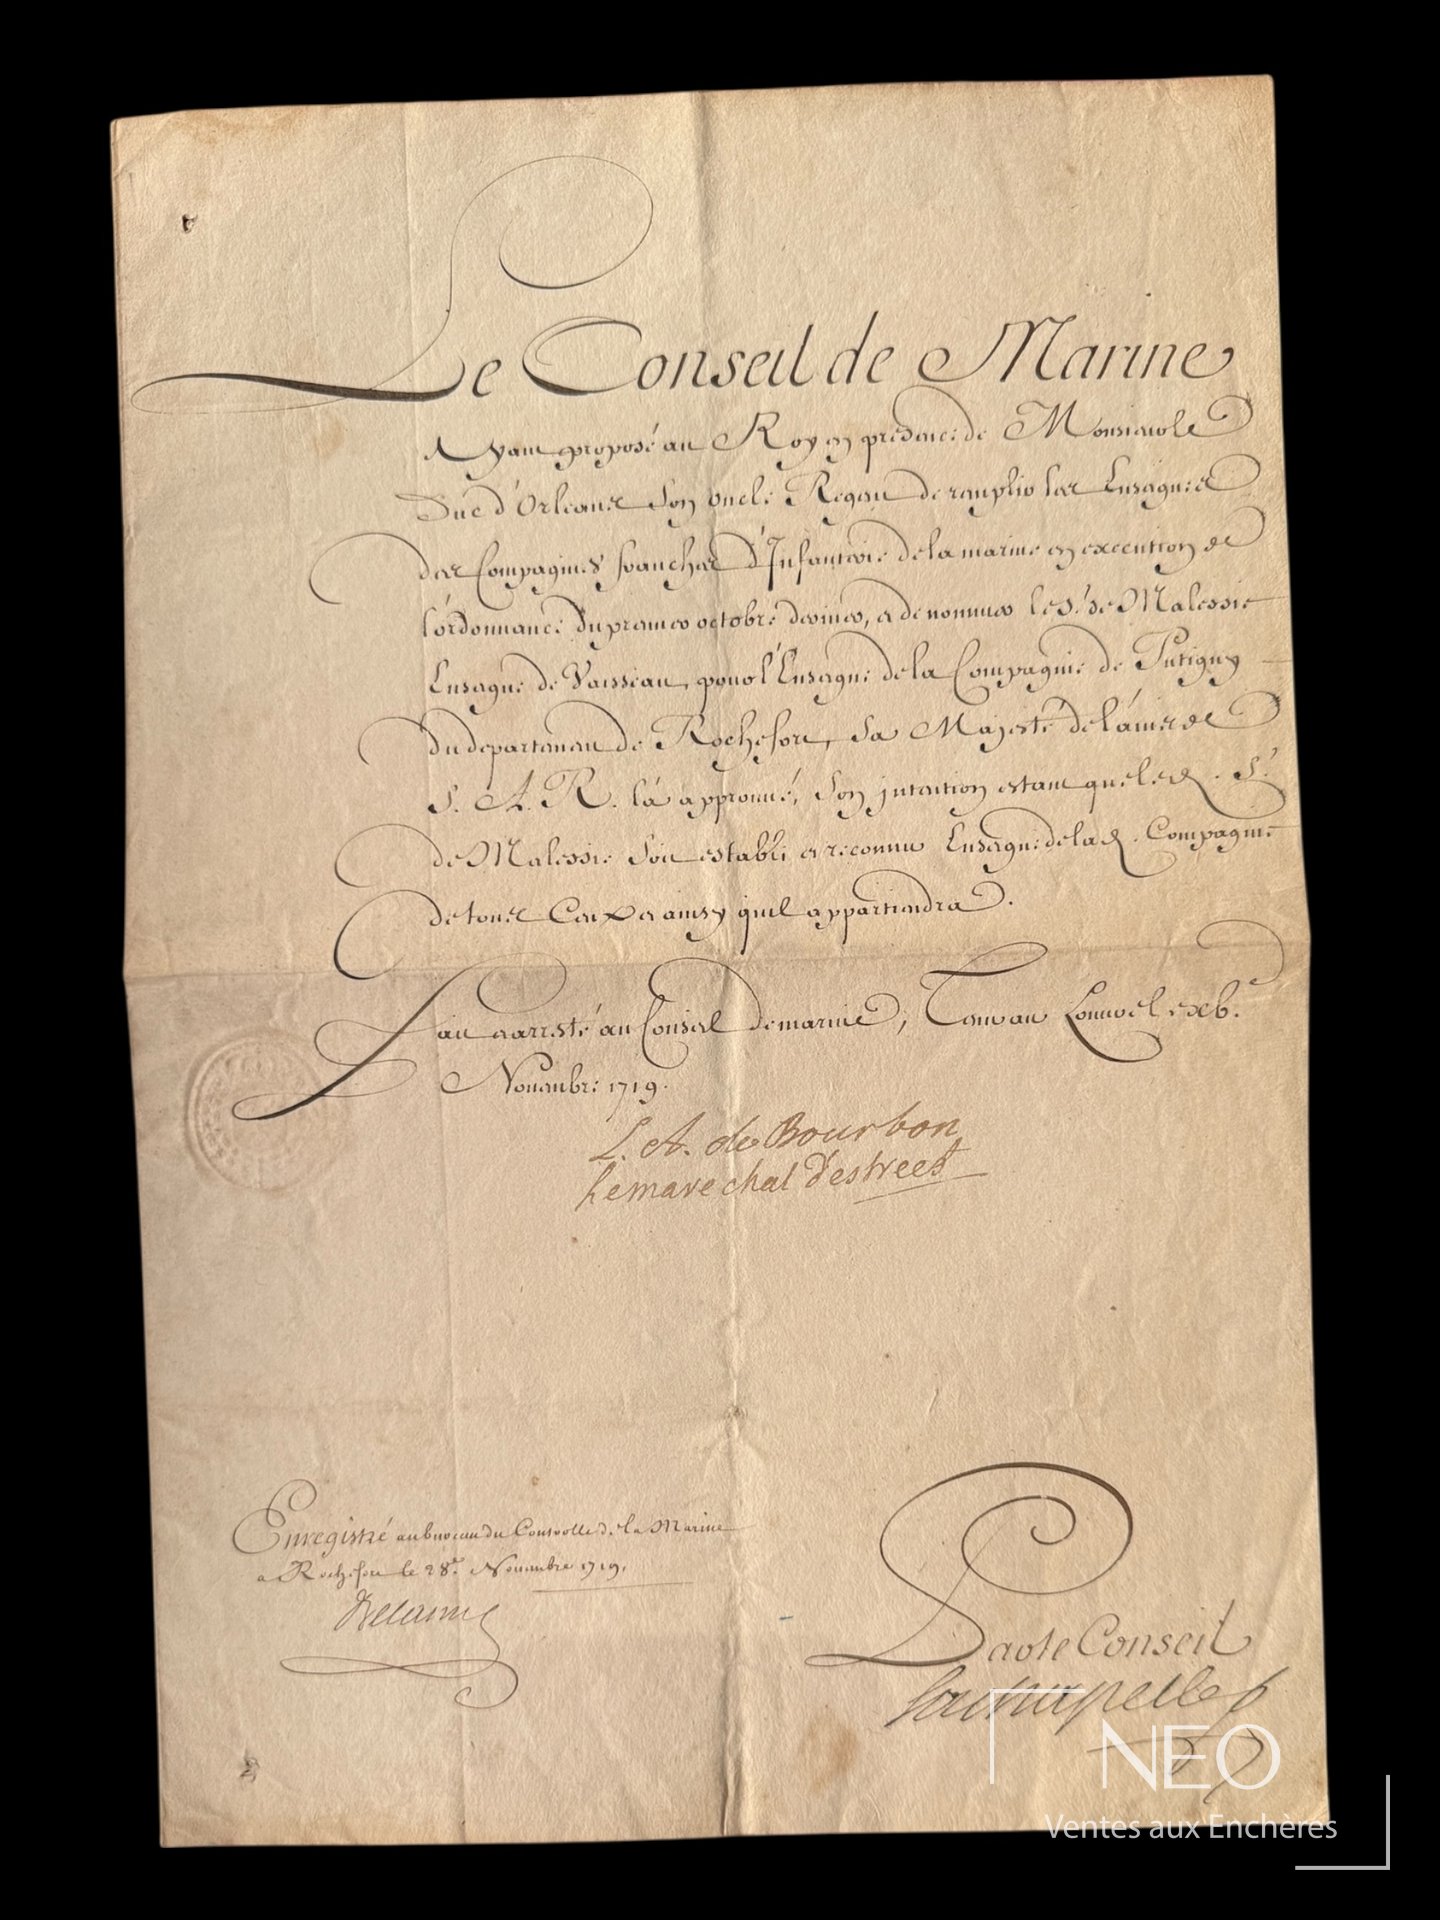 Le Conseil de Marine
Ayant proposé au Roy en presence de Monsieur le
Duc d'Orleans Son oncle Regent de remplir les Enseignes
des Compagnies franches d'Infanterie de la marine en execution de
l'ordonnance du premier octobre dernier, et de nommer le S.r de Malessie
Enseigne de Vaisseau, pour l'Enseigne de la Compagnie de Putigny
du departement de Rochefort, Sa Majesté de l'avis de
S. A. R. l'a approuvé, Son intention estant que led. S.r
de Malessie Soit establi et reconnu Enseigne de lad. Compagnie
de tous Ceux et ainsy quil appartiendra.
Fait et arresté au Conseil de marine, Tenu au Louvre le
Novembre 1719.
L. A. de Bourbon
Le marechal d'estrees
Enregistré au bureau du Controlle de la Marine
a Rochefort le 28.e Novembre 1719.
Par le Conseil
Lachapelle
NEO
Ventes aux Enchères